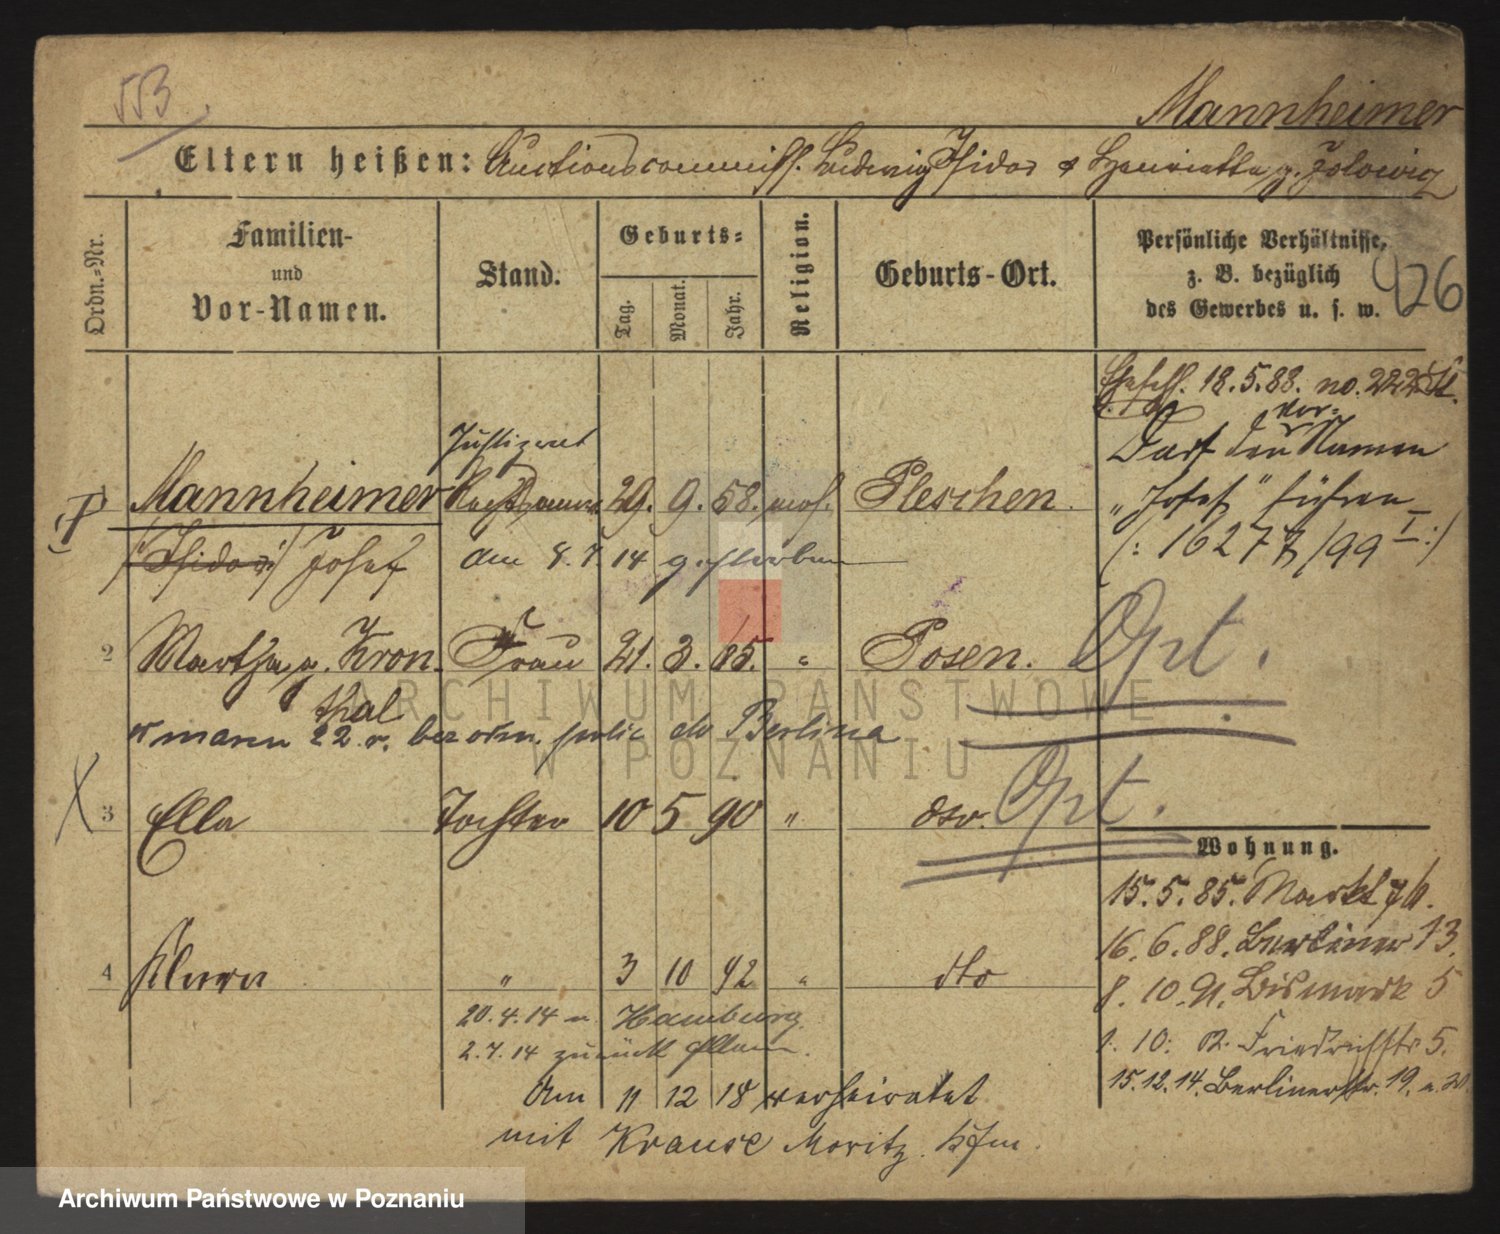 553
Mannheimer
Eltern heißen: Auctionscommiss. Ludwig Isidor & Henriette g. Jolowicz
Ordn.-Nr.
Familien-
und
Vor-Namen.
Stand.
Geburts-
Tag.
Monat.
Jahr.
Religion.
Geburts-Ort.
Persönliche Verhältnisse,
z. B. bezüglich
des Gewerbes u. s. w.
926
18.5.88. no. 222
Justizrat
Darf den Vor-Namen
1 Mannheimer Rechtsanw. 29. 9. 58. mos. Pleschen.
"Josef" führen
(Isidor) Josef am 8.7.14 gestorben
(: 16277/99 I :)
2 Martha, g. Kronthal Frau 21. 3. 65. " Posen. Opt.
w marcu 22 r. bez odm. polic do Berlina
3 Ella Tochter 10 5 90 " dto. Opt.
Wohnung.
15.5.85. Markt 76.
16.6.88. Berliner 13.
4 Klara " 3 10 92 " dto
8.10.91. Bismark 5
20.4.14 n. Hamburg.
1.10. Friedrichstr 5.
2.7.14 zurück allein.
15.12.14. Berlinerstr. 19.
Am 11 12 18 verheiratet
mit Krause Moritz Kfm.
ARCHIWUM PAŃSTWOWE
W POZNANIU
Archiwum Państwowe w Poznaniu